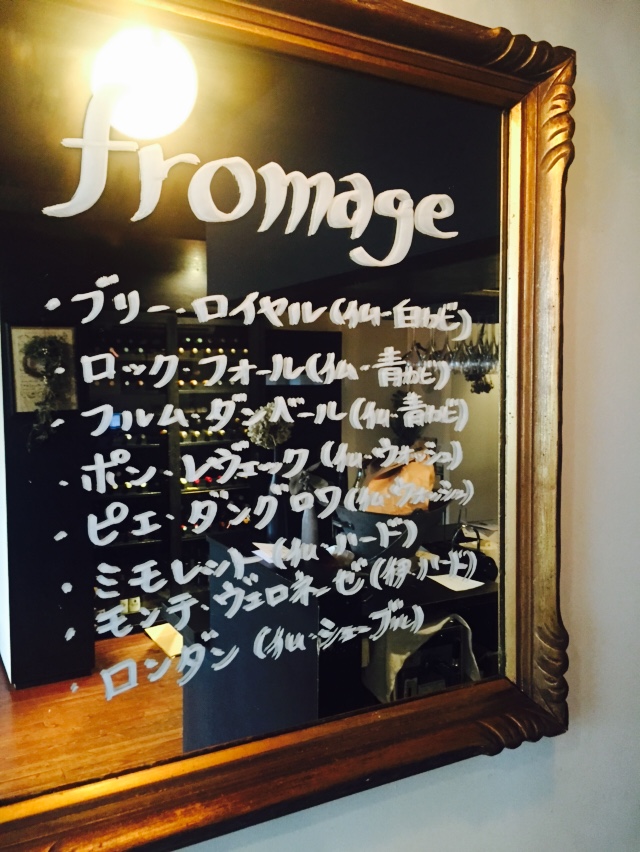 fromage
・ブリー・ロイヤル(仏・白カビ)
・ロック・フォール(仏・青カビ)
・フルム・ダンベール(仏・青カビ)
・ポン・レヴェック(仏・ウォッシュ)
・ピエ・ダングロワ(仏・ウォッシュ)
・ミモレット(仏・ハード)
・モンテ・ヴェロネーゼ(伊・ハード)
・ロンダン(仏・シェーブル)